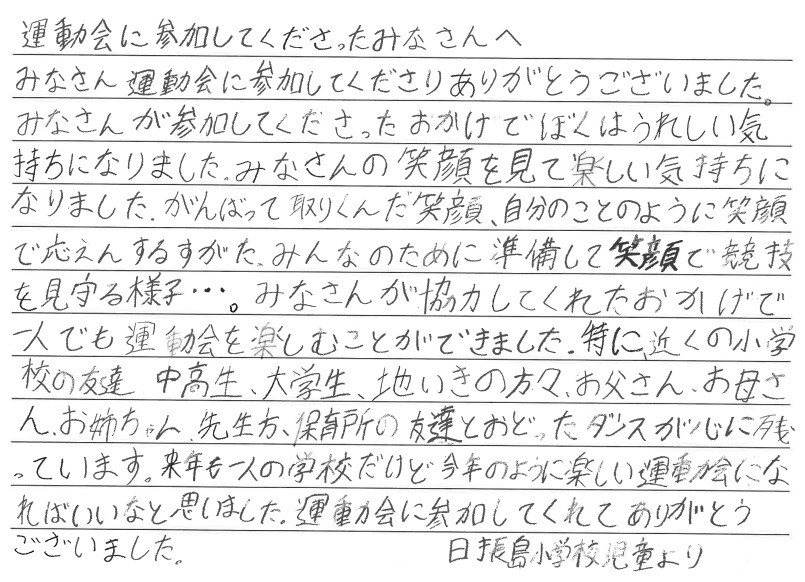 運動会に参加してくださったみなさんへ
みなさん 運動会に参加してくださりありがとうございました。
みなさんが参加してくださったおかげでぼくはうれしい気
持ちになりました。みなさんの笑顔を見て楽しい気持ちに
なりました。がんばって取りくんだ笑顔、自分のことのように笑顔
で応えんするすがた、みんなのために準備して笑顔で競技
を見守る様子・・・。みなさんが協力してくれたおかげで
一人でも運動会を楽しむことができました。特に、近くの小学
校の友達 中高生、大学生、地いきの方々、お父さん、お母さ
ん、お姉ちゃん、先生方、保育所の友達とおどったダンスが心に残
っています。来年も一人の学校だけど今年のように楽しい運動会にな
ればいいなと思いました。運動会に参加してくれてありがとう
ございました。 日振島小学校児童より